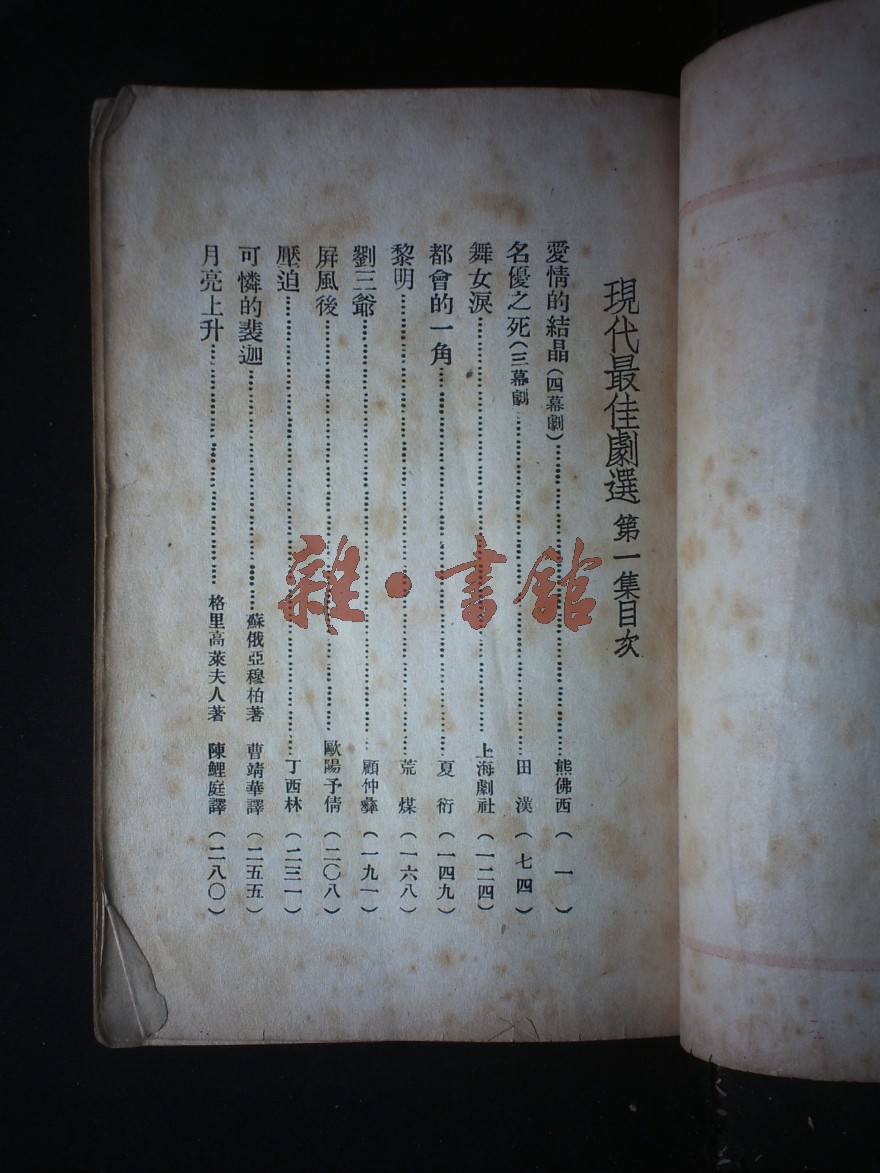 現代最佳劇選 第一集目次
愛情的結晶(四幕劇)……熊佛西(一)
名優之死(三幕劇……田漢(七四)
舞女淚……上海劇社(一二四)
都會的一角……夏衍(一四九)
黎明……荒煤(一六八)
劉三爺……顧仲彝(一九一)
屏風後……歐陽予倩(二〇八)
壓迫……丁西林(二三一)
可憐的裴迦……蘇俄亞穆柏著 曹靖華譯(二五五)
月亮上升……格里高萊夫人著 陳鯉庭譯(二八〇)
雜·書館